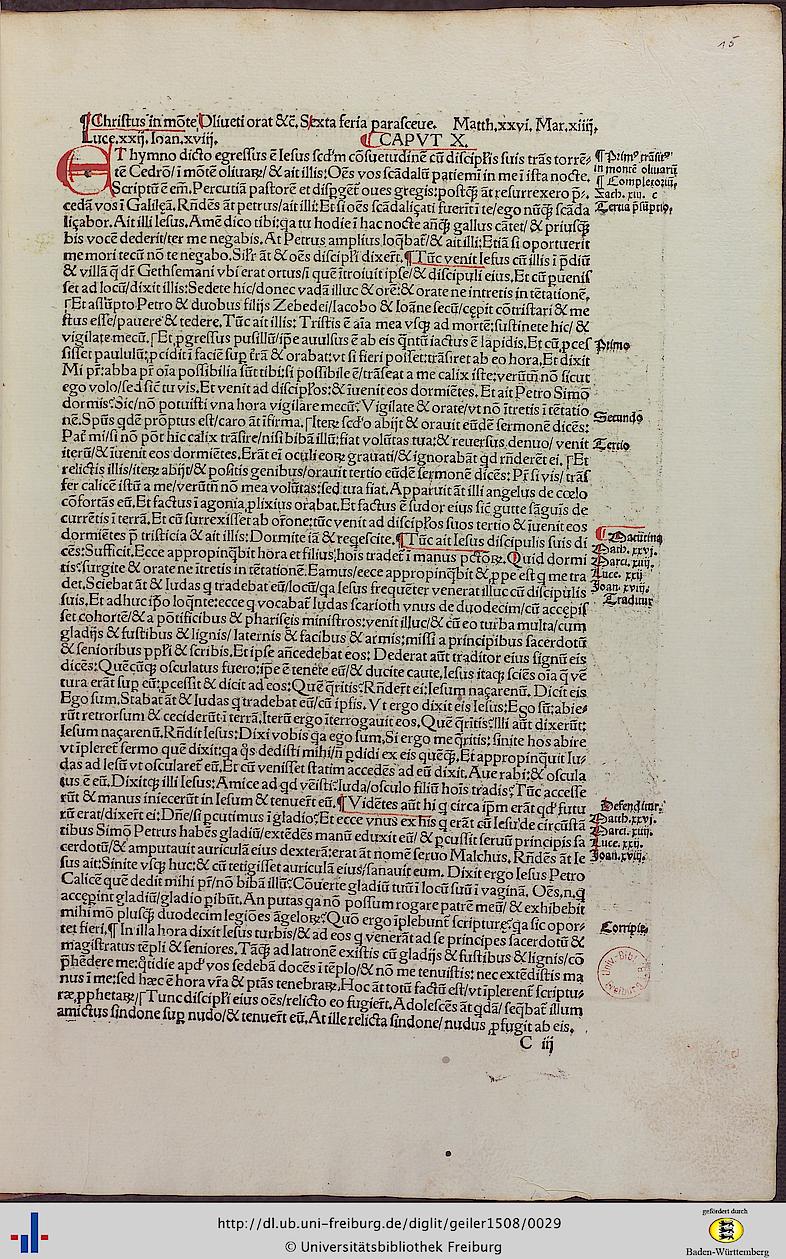 15
¶Christus in mōte Oliueti orat &c̄. Sexta feria parasceue. Matth.xxvi. Mar.xiiij.
Luce.xxij. Ioan.xviij.
¶CAPVT X.
ET hymno dicto egressus ē Iesus scd'm cōsuetudinē cū discipĺis suis trās torrē-
tē Cedrō/ ī mōtē oliuaꝝ/ & ait illis: Oēs vos scādalū patiemī in me ī ista nocte.
Scriptū ē em̄. Percutiā pastorē et disꝑgēt oues gregis: postq̄ āt resurrexero p̄-
cedā vos ī Galilęā. Rn̄dēs āt petrus/ait illi: Et si oēs scādaliçati fuerīt ī te/ego nūq̄ scāda
liçabor. Ait illi Iesus. Amē dico tibi: qa tu hodie ī hac nocte an̄q̄ gallus cātet/ & priusq̄
bis vocē dederit/ter me negabis. At Petrus amplius loq̄bat̄/& ait illi: Etiā si oportuerit
me mori tecū nō te negabo. Siĺr āt & oēs discipĺi dixer̄t. ¶Tūc venit Iesus cū illis ī p̄diū
& villā q̄ dr̄ Gethsemani vbi erat ortus/ī quē ītroiuit ipse/& discipuli eius. Et cū puenis
set ad locū/dixit illis: Sedete hic/donec vadā illuc & orē: & orate ne intretis in tētationē.
⌈Et assūpto Petro & duobus filijs Zebedei/Iacobo & Ioāne secū/cępit cōtristari & me
stus esse/pauere & tedere. Tūc ait illis: Tristis ē aīa mea vsq̨ ad mortē: sustinete hic/ &
vigilate mecū. ⌈Et ꝓgressus pusillū/ipē auulsus ē ab eis q̄ntū iactus ē lapidis. Et cū ꝓces
sisset paululū: ꝓcidit ī faciē sup̱ t̄rā & orabat: vt si fieri posset: trāsiret ab eo hora. Et dixit
Mi pr̄: abba pr̄ oīa possibilia sūt tibi: si possibile ē/trāseat a me calix iste: verūtn̄ nō sicut
ego volo/sed sic̄ tu vis. Et venit ad discipĺos: & īuenit eos dormiētes. Et ait Petro Simō
dormis? Sic/nō potuisti vna hora vigilare mecū? Vigilate & orate/vt nō ītretis ī tētatio
nē. Spūs qdē prōptus est/caro āt īfirma. ⌈Iteꝝ scd'o abijt & orauit eūdē sermonē dicēs:
Pat̄ mi/si nō pōt hic calix trāsire/nisi bibā illū: fiat volūtas tua: & reuersus denuo/ venit
iterū/& īuenit eos dormiētes. Erāt eī oculi eoꝝ grauati/& ignorabāt qd rn̄derēt ei. ⌈Et
relictis illis/iteꝝ abijt/& positis genibus/orauit tertio eūdē sermonē dicēs: Pr̄ si vis/ trās
fer calicē istū a me/verūtn̄ nō mea volūtas: sed tua fiat. Apparuit āt illi angelus de cœlo
cōfortās eū. Et factus ī agonia/ꝓlixius orabat. Et factus ē sudor eius sic̄ gutte sāguīs de
currētis ī terrā. Et cū surrexisset ab orōne: tūc venit ad discipĺos suos tertio & īuenit eos
dormiētes p̱ tristicia & ait illis: Dormite iā & reqescite. ¶Tūc ait Iesus discipulis suis di
cēs: Sufficit. Ecce appropinq̄bit hora et filius/hois tradet̄ ī manus pctōꝝ. Quid dormi
tis? surgite & orate ne ītretis in tētationē. Eamus/ecce appropinq̄bit & ꝓpe est q me tra
det. Sciebat āt & Iudas q tradebat eū/locū/qa Iesus frequēter venerat illuc cū discipulis
suis. Et adhuc ip̄o loq̄nte: ecce q vocabat̄ Iudas scarioth vnus de duodecim/cū accepis
set cohortē/& a pōtificibus & phariseis ministros: venit illuc/& cū eo turba multa/cum
gladijs & fustibus & lignis/ laternis & facibus & armis: missi a principibus sacerdotū
& senioribus ppĺi & scribis. Et ipse ancedebat eos: Dederat aūt traditor eius signū eis
dicēs: Quēcūq̨ osculatus fuero: ipē ē tenete eū/& ducite caute. Iesus itaq̨ sciēs oīa q̄ vē
tura erāt sup̱ eū: ꝓcessit & dicit ad eos: Quē q̄ritis? Rn̄der̄t ei: Iesum naçarenū. Dicit eis
Ego sum. Stabat āt & Iudas q tradebat eū/cū ipsis. Vt ergo dixit eis Iesus: Ego sū: abie-
rūt retrorsum & ceciderūt ī terrā. Iterū ergo īterrogauit eos. Quē q̄ritis? Illi aūt dixerūt:
Iesum naçarenū. Rn̄dit Iesus: Dixi vobis qa ego sum. Si ergo me q̄ritis: sinite hos abire
vt īpleret̄ sermo quē dixit: qa q̄s dedisti mihi/nō p̱didi ex eis quēq̄. Et appropinquit Iu-
das ad Iesū vt oscularet̄ eū. Et cū venisset statim accedēs ad eū dixit. Aue rabi: & oscula
tus ē eū. Dixitq̨ illi Iesus: Amice ad qd vēisti? Iuda/osculo filiū hois tradis? Tūc accesse
rūt & manus iniecerūt in Iesum & tenuer̄t eū. ¶Vidētes aūt hi q circa ip̄m erāt qd' futu
rū erat/dixer̄t ei: Dn̄e/si p̱cutimus ī gladio? Et ecce vnus ex his q erāt cū Iesu/de circūstā
tibus Simō Petrus habēs gladiū/extēdēs manū eduxit eū/ & p̱cussit seruū principis sa
cerdotū/& amputauit auriculā eius dexterā: erat āt nomē seruo Malchus. Rn̄dēs āt Ie
sus ait: Sinite vsq̨ huc: & cū tetigisset auriculā eius/sanauit eum. Dixit ergo Iesus Petro
Calicē quē dedit mihi pr̄/nō bibā illū? Cōuerte gladiū tuū ī locū suū ī vaginā. Oēs.n.q
accępint gladiū/gladio p̱ibūt. An putas qa nō possum rogare patrē meū/ & exhibebit
mihi mō plusq̄ duodecim legiōes āgeloꝝ? Quō ergo īplebunt̄ scripturę? qa sic opor-
tet fieri. ¶In illa hora dixit Iesus turbis/& ad eos q venerāt ad se principes sacerdotū &
magistratus tēpli & seniores. Tāq̄ ad latronē existis cū gladijs & fustibus & lignis/cō
p̄hēdere me: q̄tidie apd' vos sedebā docēs ī tēplo/& nō me tenuistis: nec extēdistis ma
nus ī me: sed hæc ē hora vr̄a & ptās tenebraꝝ. Hoc āt totū factū est/vt īplerent̄ scriptu-
ræ ꝓphetaꝝ/⌈Tunc discipĺi eius oēs/relicto eo fugier̄t. Adolescēs āt qdā/ seq̄bat̄ illum
amictus sindone sup̱ nudo/& tenuer̄t eū. At ille relicta sindone/ nudus ꝓfugit ab eis.
C iij
in monte oliuarū
¶ Completorium
Zach. xiij. c
Primo
Secundo
Tertio
¶ Matutina
Math. xxvj.
Marci. xiiij.
Luce. xxij
Joan. xviij.
Traditur
Defenditur.
Math. xxvj.
Marci. xiiij.
Luce. xxij.
Joan. xviij.
Corripit
Univ.-Bibl. Freiburg i. B.
http://dl.ub.uni-freiburg.de/diglit/geiler1508/0029
© Universitätsbibliothek Freiburg
gefördert durch
Baden-Württemberg